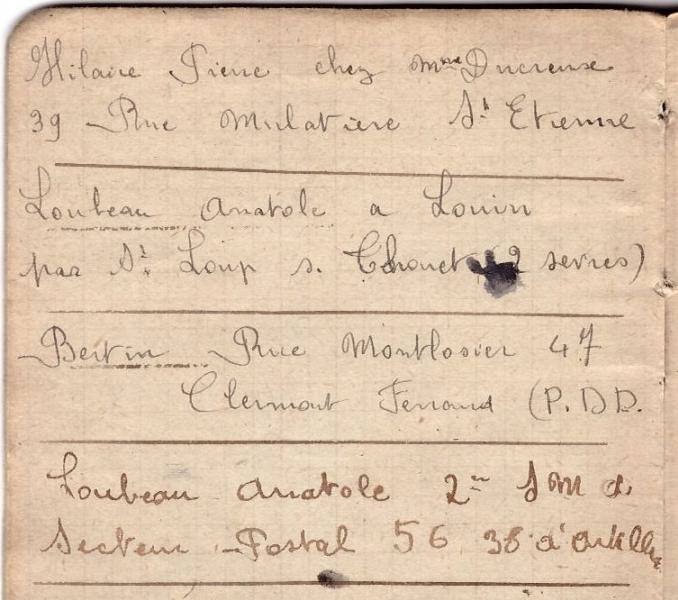 Hilaire Pierre chez Mme Ducreuse
39 Rue Mulatiere St Etienne
Loubeau Anatole a Louin
par St Loup s. Thouet 2 sevres)
Bertin Rue Montlosier 47
Clermont Ferrand (P.DD.
Loubeau Anatole 2me
Secteur Postal 56 38 d'artille